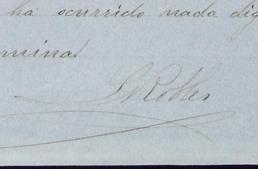 ha ocurrido nada dig
mina.